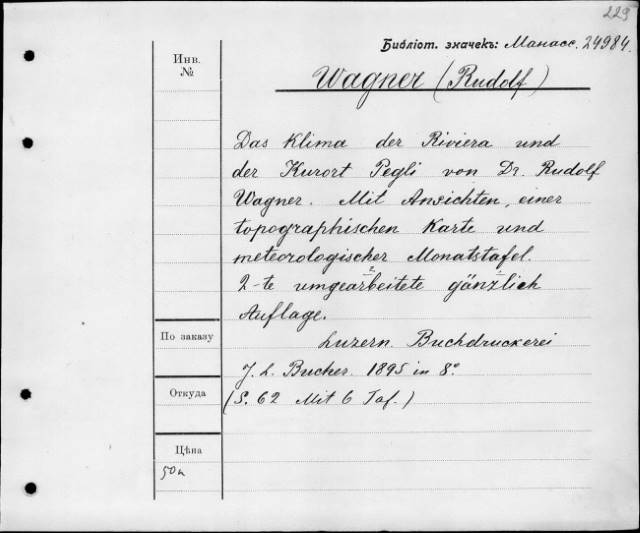 229
Библіот. значекъ: Манасс. 24984.
Инв.
№
Wagner (Rudolf)
Das Klima der Riviera und
der Kurort Pegli von Dr. Rudolf
Wagner. Mit Ansichten, einer
topographischen Karte und
meteorologischer Monatstafel.
2-te umgearbeitete gänzlich
Auflage.
По заказу
Luzern. Buchdruckerei
J. L. Bucher. 1895 in 8°
Откуда
(S. 62 Mit 6 Taf.)
Цѣна
50к